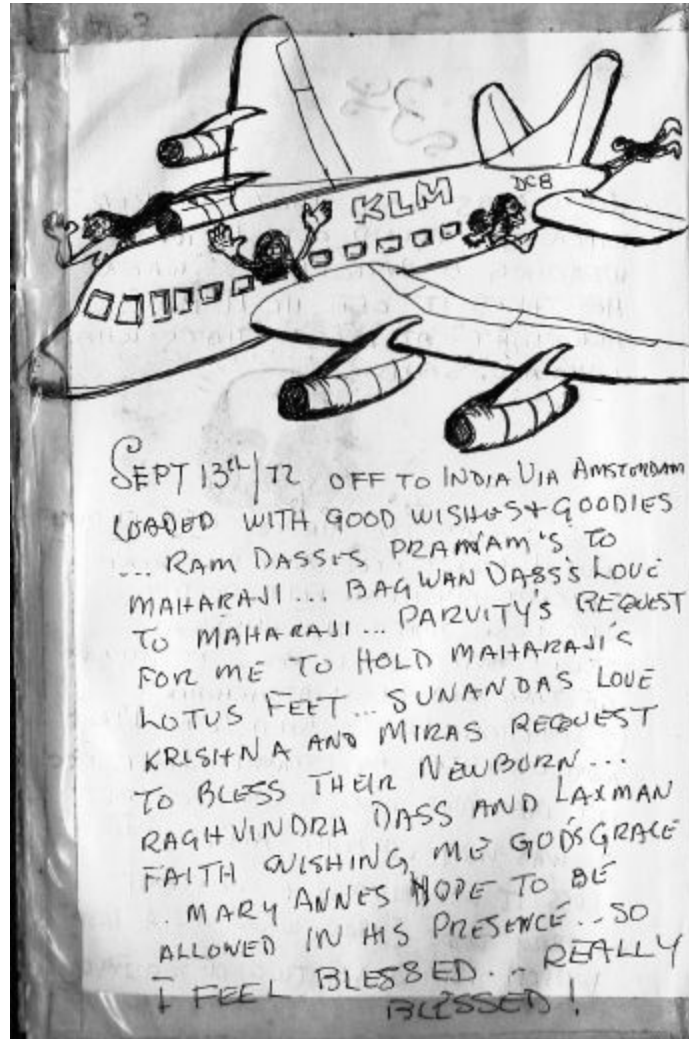 KLM
DC8
SEPT 13th/72 OFF TO INDIA VIA AMSTERDAM
LOADED WITH GOOD WISHES + GOODIES
... RAM DASSES PRANAM'S TO
MAHARAJI... BAGWAN DASS'S LOVE
TO MAHARAJI... PARVITY'S REQUEST
FOR ME TO HOLD MAHARAJI'S
LOTUS FEET... SUNANDAS LOVE
KRISHNA AND MIRAS REQUEST
TO BLESS THEIR NEWBORN...
RAGHVINDRH DASS AND LAXMAN
FAITH WISHING ME GOD'S GRACE
.. MARY ANNES HOPE TO BE
ALLOWED IN HIS PRESENCE... SO
I FEEL BLESSED... REALLY
BLESSED!